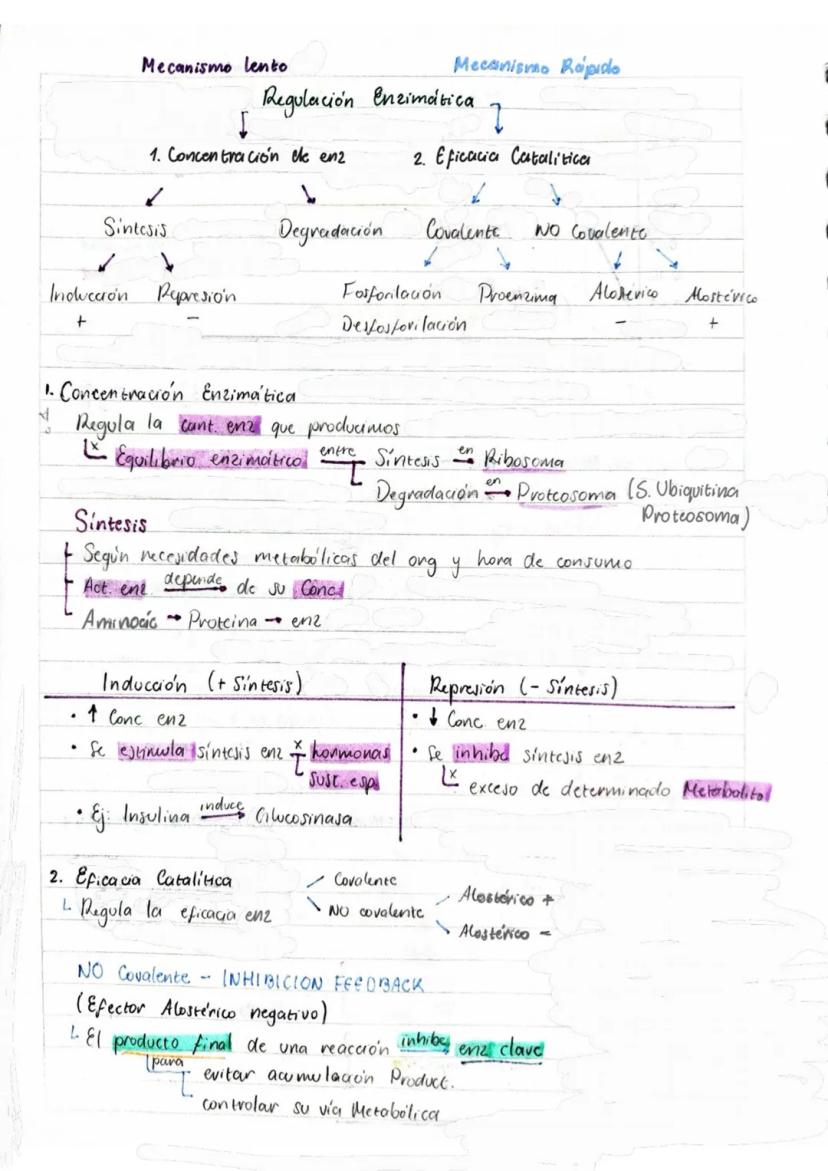 Mecanismo lento Mecanismo Rápido
Regulación Enzimática
1. Concentración de enz 2. Eficacia Catalítica
Síntesis Degradación Covalente NO Covalente
Inducción Represión Fosforilación Proenzima Alostérico Alostérico
+ - Desfosforilación - +
1. Concentración Enzimática
Regula la cant. enz que producimos
x Equilibrio enzimático entre Síntesis en Ribosoma
Degradación en Proteosoma (S. Ubiquitina
Proteosoma)
Síntesis
Según necesidades metabólicas del org y hora de consumo
Act. enz depende de su Conc
Aminoác → Proteina → enz
Inducción (+ Síntesis) Represión (- Síntesis)
• ↑ Conc enz • ↓ Conc enz
• Se estimula síntesis enz x hormonas • Se inhibe síntesis enz
sust. esp. x exceso de determinado Metabolito
• Ej: Insulina induce Glucosinasa
2. Eficacia Catalítica Covalente
Regula la eficacia enz NO covalente Alostérico +
Alostérico -
NO Covalente - INHIBICION FEEDBACK
(Efector Alostérico negativo)
El producto final de una reacción inhibe enz clave
para evitar acumulación Product.
controlar su vía Metabólica